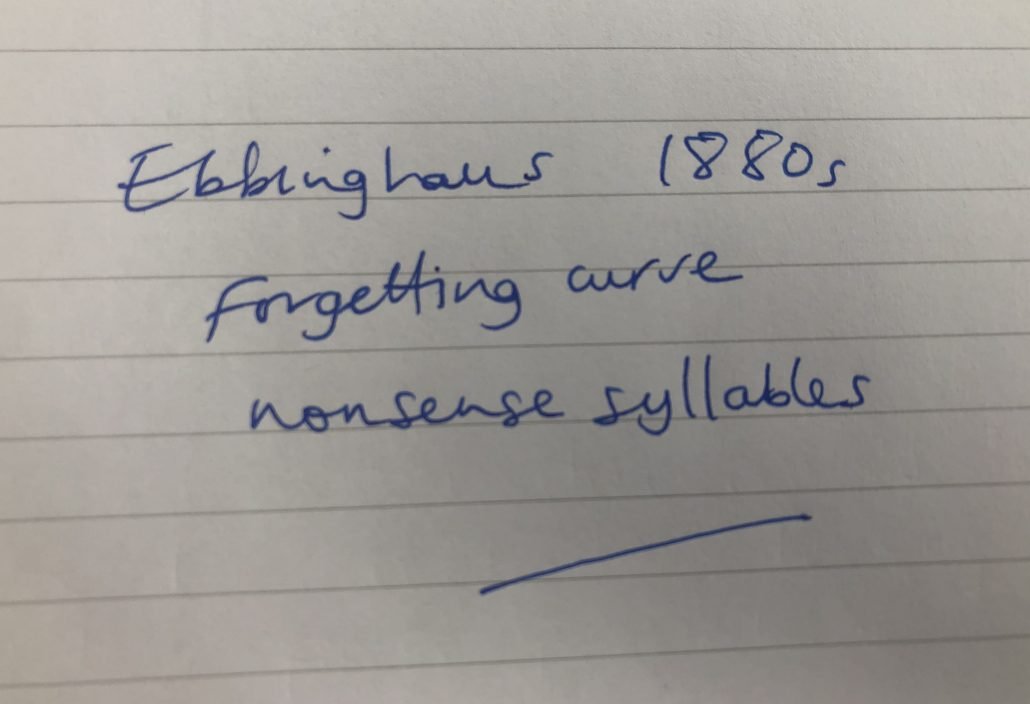 Ebbinghaus 1880s
forgetting curve
nonsense syllables